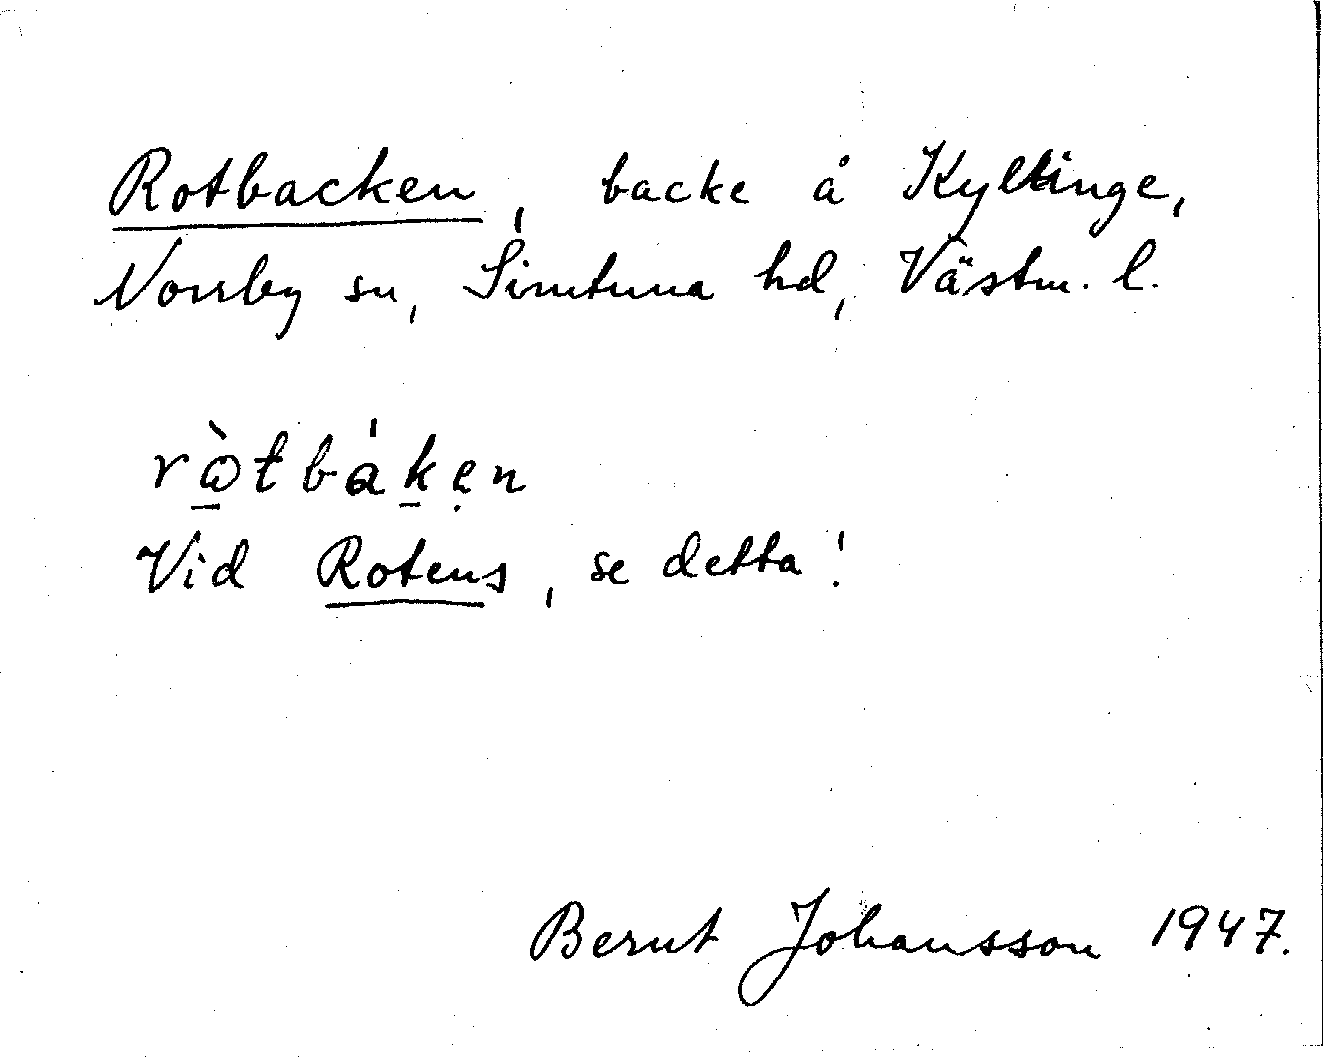 Rotbacken, backe å Kyllinge,
Norrby sn, Simtuna hd, Västm. l.
rὼ̱tbáḵẹn
Vid Rotens, se detta!
Bernt Johansson 1947.